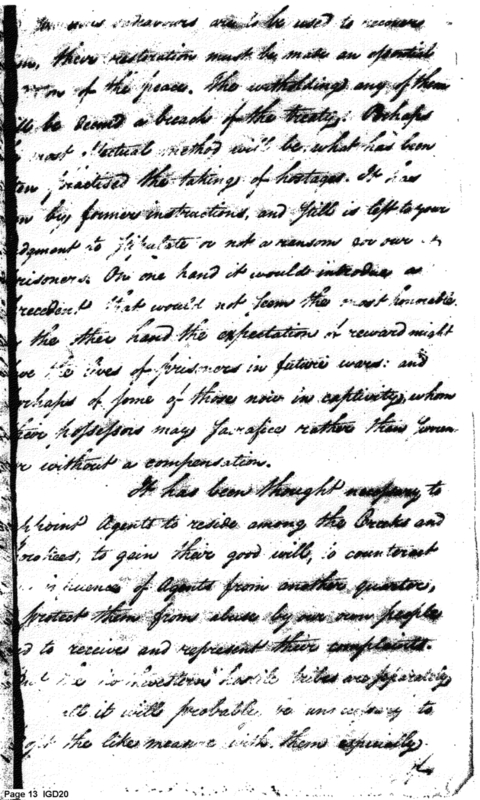 endeavours are to be used to recover
their restoration must be made an essential
of the peace. The witholding any of them
be deemed a breach of the treaty. Perhaps
most effectual method will be, what has been
practised the taking of hostages. It has
by former instructions, and still is left to your
to stipulate or not a ransom for our
On one hand it would introduce a
that would not seem the most honorable
the other hand the expectation of reward might
the lives of prisoners in future wars: and
of some of those now in captivity, whom
possessors may sacrifice rather than
without a compensation.
It has been thought necessary to
Agents to reside among the Creeks and
to gain their good will, to counteract
of Agents from another quarter,
protect them from abuse by our own people
to receive and represent their complaints.
the hostile tribes are separately
it will probably be unnecessary to
the like measure with them especially
Page 13 IGD20